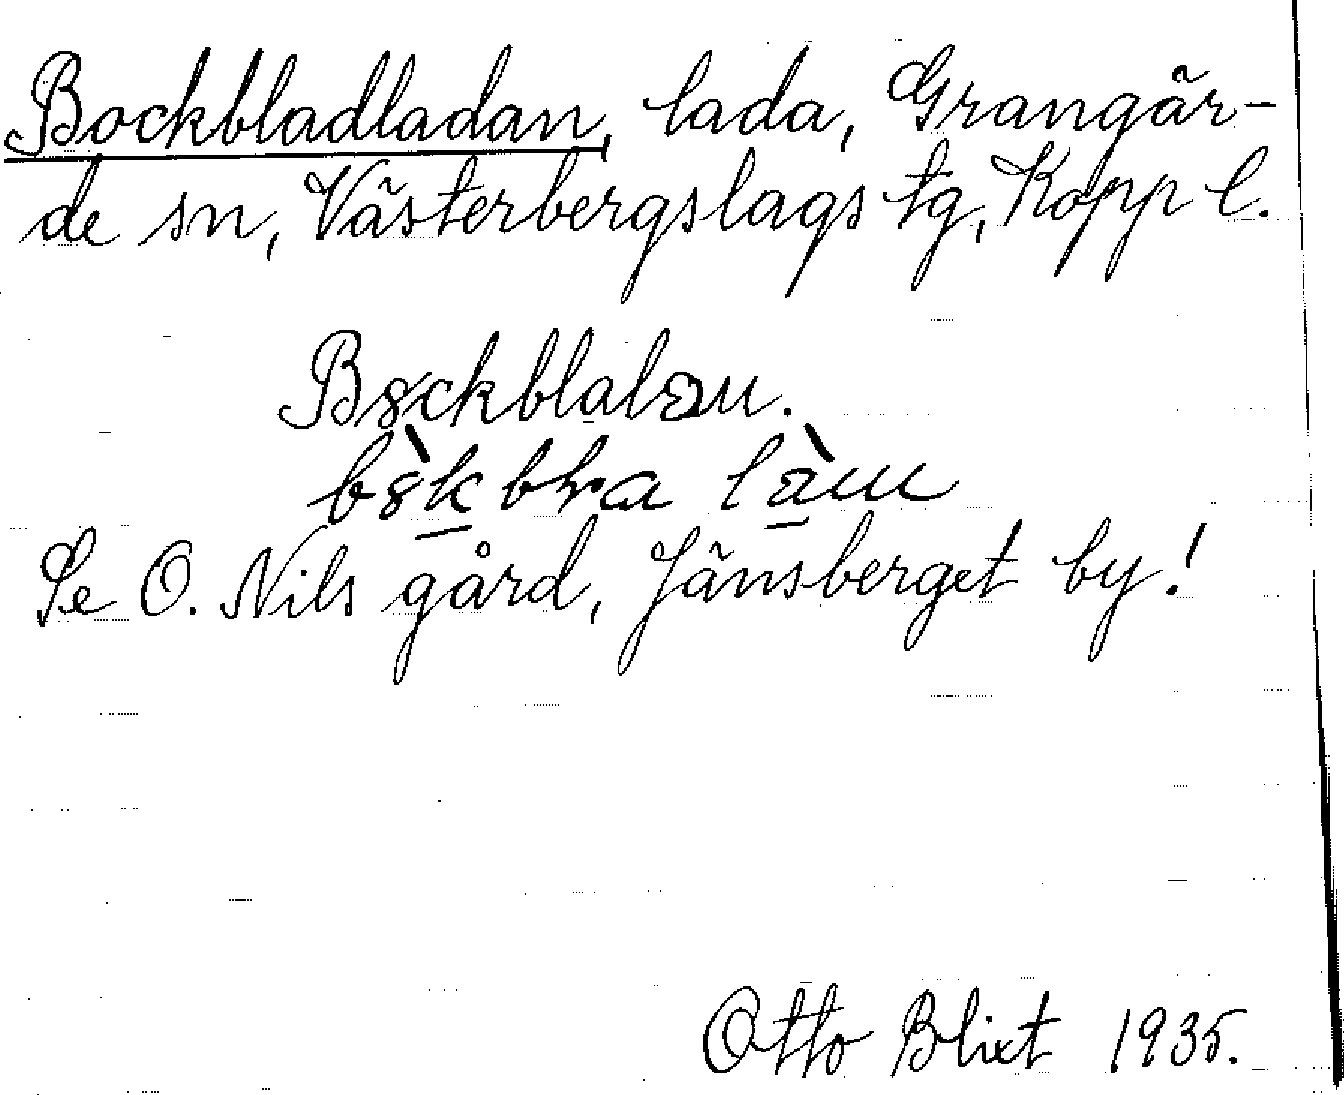 Bockbladladan, lada, Grangär-
de sn, Västerbergslags tg, Kopp l.
Bsckblalau.
Se O. Nils gård, Jänsberget by!
Otto Blixt 1935.